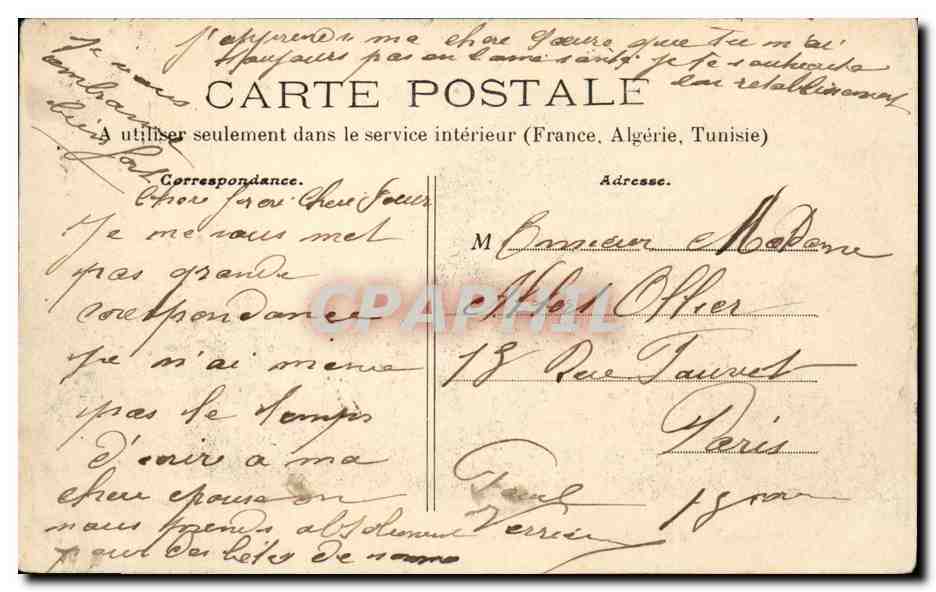 J'apprends ma chere soeur que tu m'ai
toujours pas en bonne santé je te souhaite
bon retablissement
Je vous
embrasse
bien fort
CARTE POSTALE
A utiliser seulement dans le service intérieur (France, Algérie, Tunisie)
Correspondance.
Adresse.
Chere frere Chere Soeur
Je me vous met
pas grande
respondance
Je n'ai meme
pas le temps
d'ecrire a ma
chere epouse on
nous prends absolument
pour des bêtes de
M Monsieur Madame
Albert Ollier
18 Rue Fauvet
Paris
18
Paul
Verrier
CPAPHIL